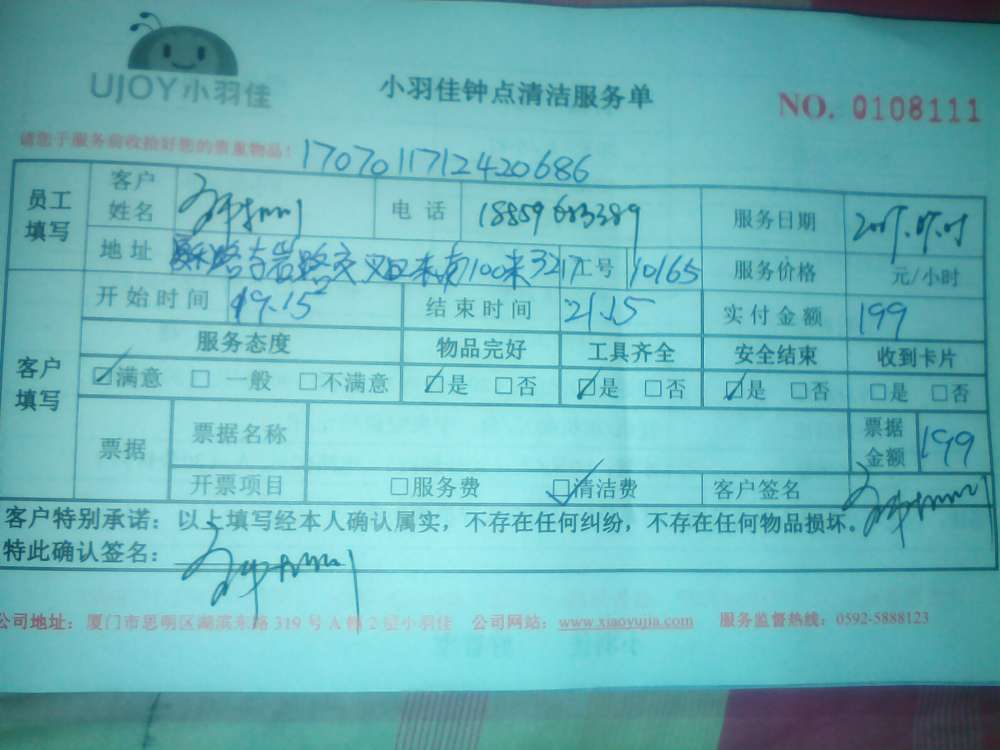 UJOY小羽佳
小羽佳钟点清洁服务单
NO. 0108111
请您于服务前收拾好您的贵重物品！
1707011712420686
员工填写 客户姓名 电话 服务日期
地址 路古岩路交叉口来南100米 工号 10165 服务价格 元/小时
开始时间 19.15 结束时间 21.15 实付金额 199
客户填写 服务态度 物品完好 工具齐全 安全结束 收到卡片
☑满意 □一般 □不满意 ☑是 □否 ☑是 □否 ☑是 □否 □是 □否
票据 票据名称 票据金额 199
开票项目 □服务费 ☑清洁费 客户签名
客户特别承诺：以上填写经本人确认属实，不存在任何纠纷，不存在任何物品损坏。
特此确认签名：
公司地址：厦门市思明区湖滨东路 319 号 A 幢 2 楼小羽佳 公司网站：www.xiaoyujia.com 服务监督热线：0592-5888123